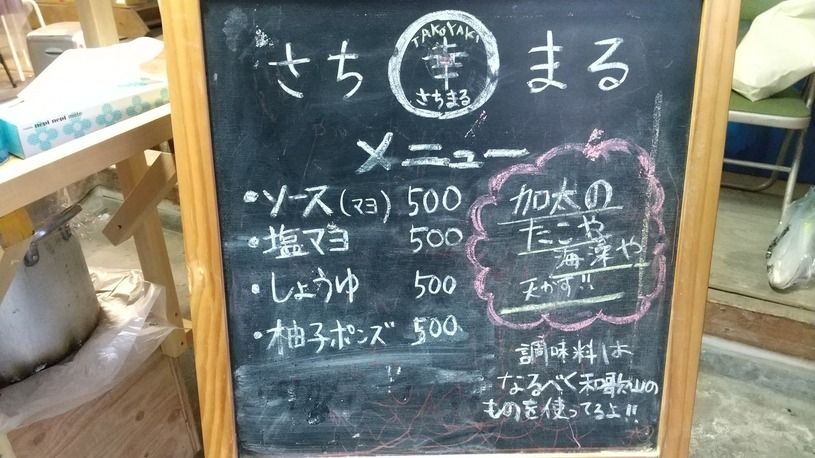 さち
TAKOYAKI
幸
さちまる
まる
メニュー
・ソース(マヨ) 500
・塩マヨ 500
・しょうゆ 500
・柚子ポンズ 500
加太の
たこや
海藻や
天かす!!
調味料は
なるべく和歌山の
ものを使ってるよ!!
nepi nepi mate